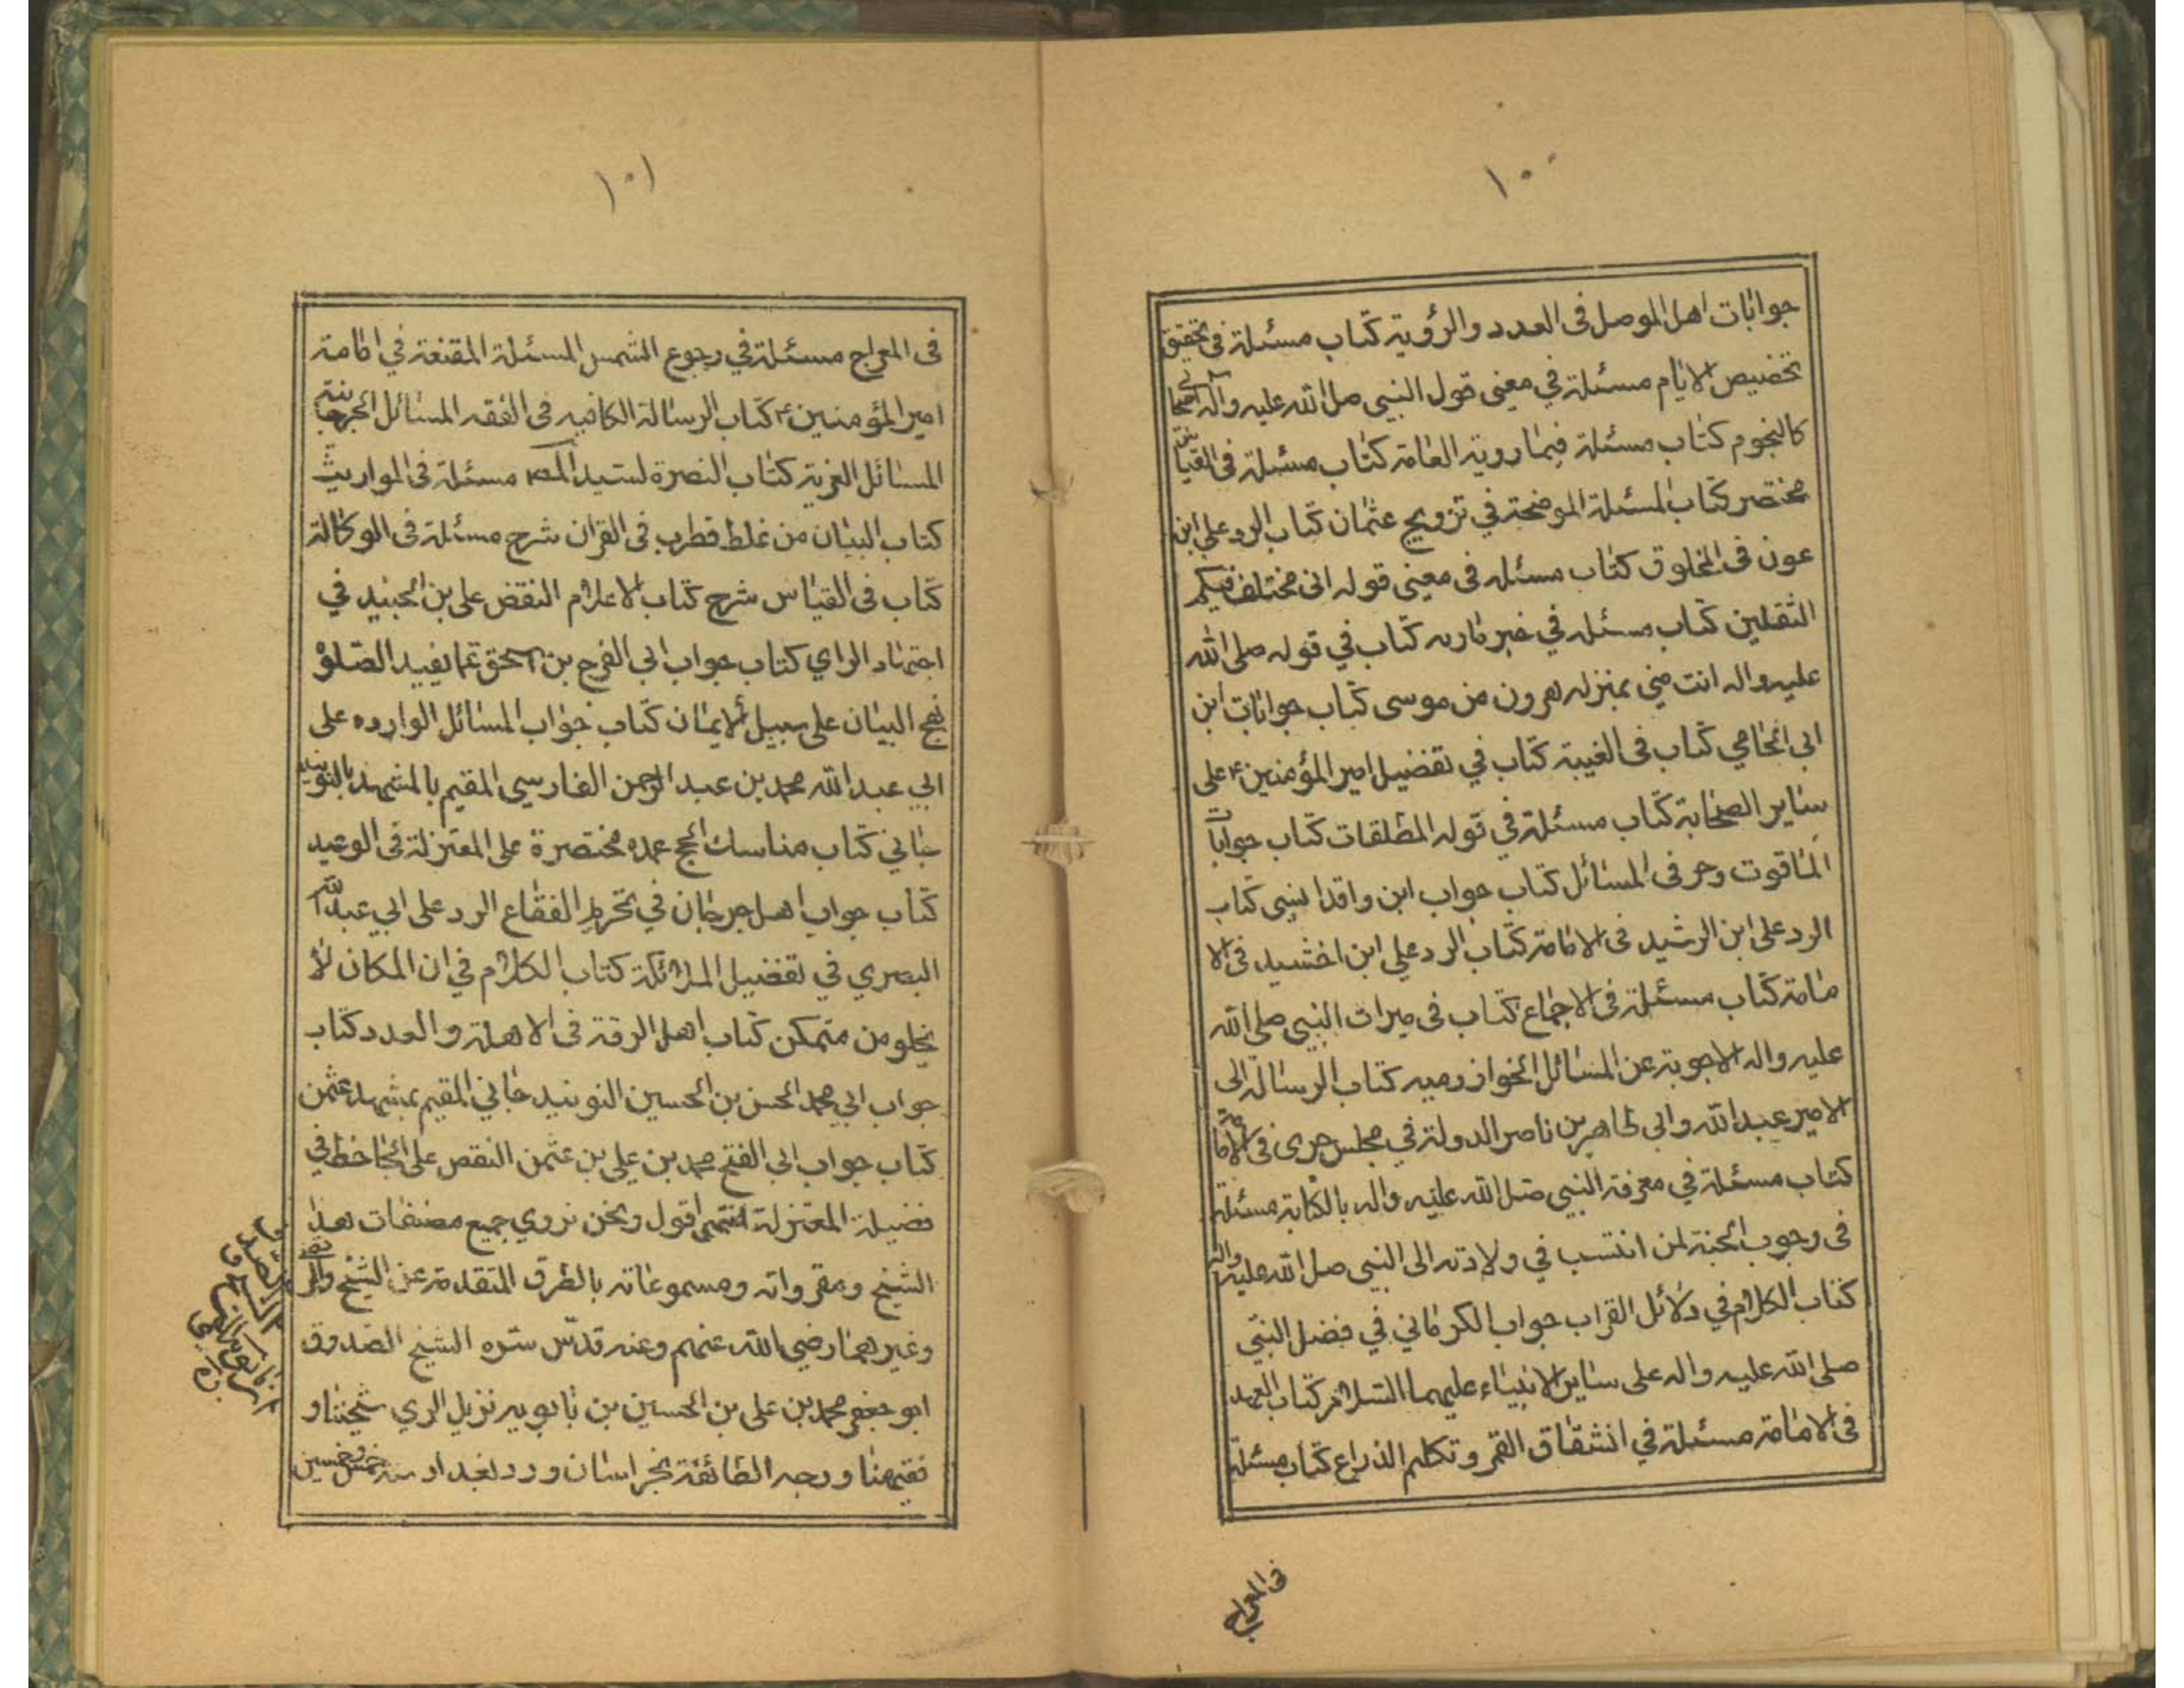 ١٠٠
جوابات اهل الموصل فى العدد والرؤية كتاب مسئلة فى تحقيق
تخصيص الايام مسئلة في معنى قول النبي صلى الله عليه واله اصحا بي
كالنجوم كتاب مسئلة فيما روية العامة كتاب مسئلة فى القياس
مختصر كتاب المسئلة الموضحة في تزويج عثمان كتاب الرد علي ابن
عون فى المخلوق كتاب مسئله فى معنى قوله انى مختلف فيكم
الثقلين كتاب مسئله في خبر ماريه كتاب في قوله صلى الله
عليه واله انت مني بمنزله هرون من موسى كتاب جوابات ابن
ابي الحامي كتاب فى الغيبة كتاب في تفضيل امير المؤمنين ع على
ساير الصحابة كتاب مسئلة في قوله المطلقات كتاب جوابات
المافوت وحر فى المسائل كتاب جواب ابن واقدا لسنى كتاب
الرد على ابن الرشيد فى الامامة كتاب الرد علي ابن اخشيد فى الا
مامة كتاب مسئلة فى الاجماع كتاب فى ميراث النبي صلى الله
عليه واله الاجوبة عن المسائل الخوارزميه كتاب الرسالة الى
الامير عبد الله وابى طاهر بن ناصر الدولة في مجلس جرى فى الامامة
كتاب مسئلة في معرفة النبي صلى الله عليه واله بالكتابة مسئلة
فى وجوب الجنة لمن انتسب في ولادته الى النبى صلى الله عليه واله
كتاب الكلام في دلائل القراب جواب الكرماني في فضل النبي
صلى الله عليه واله على ساير الانبياء عليهما السلام كتاب العهد
فى الامامة مسئلة في انشقاق القمر وتكلم الذراع كتاب مسئلة
فى المعراج
١٠١
فى المعراج مسئلة في رجوع الشمس المسئلة المقنعة في امامة
امير المؤمنين ع كتاب الرسالة الكافيه فى الفقه المسائل الجرجانية
المسائل الغرية كتاب النصرة لسيد مسئلة فى المواريث
كتاب البيان من غلط قطرب فى القران شرح مسئلة فى الوكالة
كتاب فى القياس شرح كتاب الاعلام النقض على بن الجنيد في
اجتهاد الراي كتاب جواب ابى الفرج بن اسحق عما يفيد الصلوة
نهج البيان على سبيل الايمان كتاب جواب المسائل الوارده على
ابي عبد الله محمد بن عبد الرحمن الفارسي المقيم بالمشهد بالنوبند
جاني كتاب مناسك الحج عمده مختصرة على المعتزلة فى الوعيد
كتاب جواب اهل جرجان في تحريم الفقاع الرد على ابي عبد الله
البصري في تفضيل الملائكة كتاب الكلام في ان المكان لا
يخلو من متمكن كتاب اهل الرقة فى الاهلة والعدد كتاب
جواب ابي محمد الحسن بن الحسين النوبنيد جاني المقيم بمشهد عثمن
كتاب جواب ابى الفتح محمد بن علي بن عثمن النقص على الجاحظ في
فضيلة المعتزلة انتهى اقول ونحن نروي جميع مصنفات هذا
الشيخ ومقرواته ومسموعاته بالطرق المتقدمة عن الشيخ والمرتضى
وغيرهما رضي الله عنهم وعنه قدس سره الشيخ الصدوق
ابو جعفر محمد بن على بن الحسين بن بابويه نزيل الري شيخنا و
فقيهنا ووجه الطائفة بخراسان ورد بغداد سنه خمس وخمسين